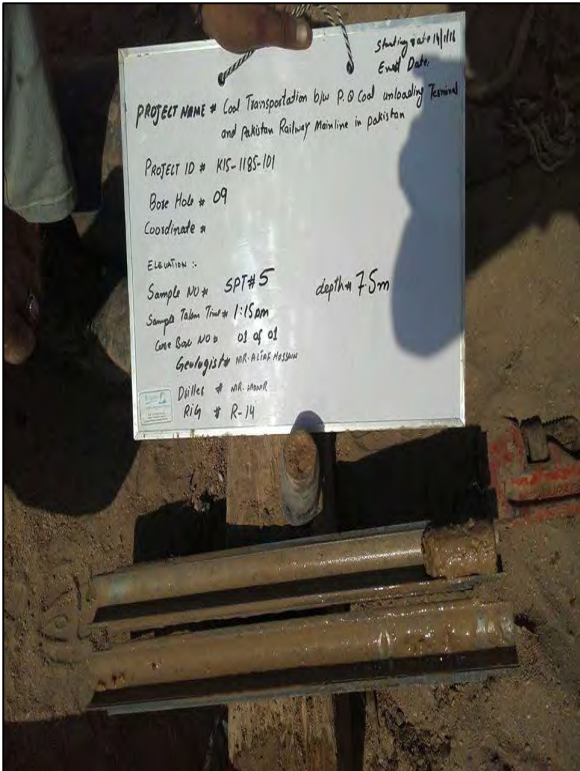 Starting date 14/1/16
End Date:
PROJECT NAME # Coal Transportation b/w P.Q Coal unloading Terminal
and Pakistan Railway Mainline in pakistan
PROJECT ID # K15-1185-101
Bore Hole # 09
Coordinate #
ELEVATION :-
Sample NO # SPT#5 depth # 7.5m
Sample Taken Time # 1:15pm
Core Box NO # 01 of 01
Geologist # MR. Hossain
Driller # MR.
RiG # R-14